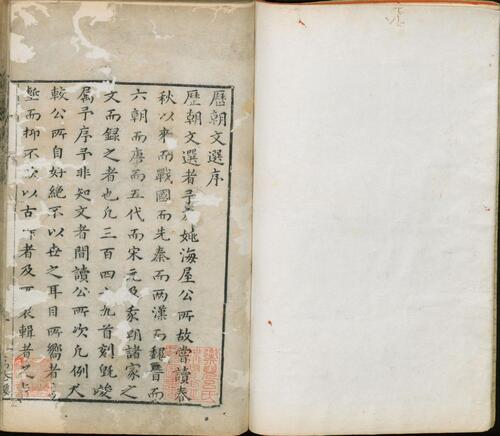 歷朝文選序
歷朝文選者予 姚海屋公所故嘗讀春
秋以來而戰國而先秦而兩漢而魏晉而
六朝而唐而五代而宋元及我明諸家之
文而錄之者也凡三百四十九首刻旣竣
屬予序予非知文者間讀公所次凡例大
較公所自好絕不以世之耳目所嚮者
而抑不 以古 者及 輯者之